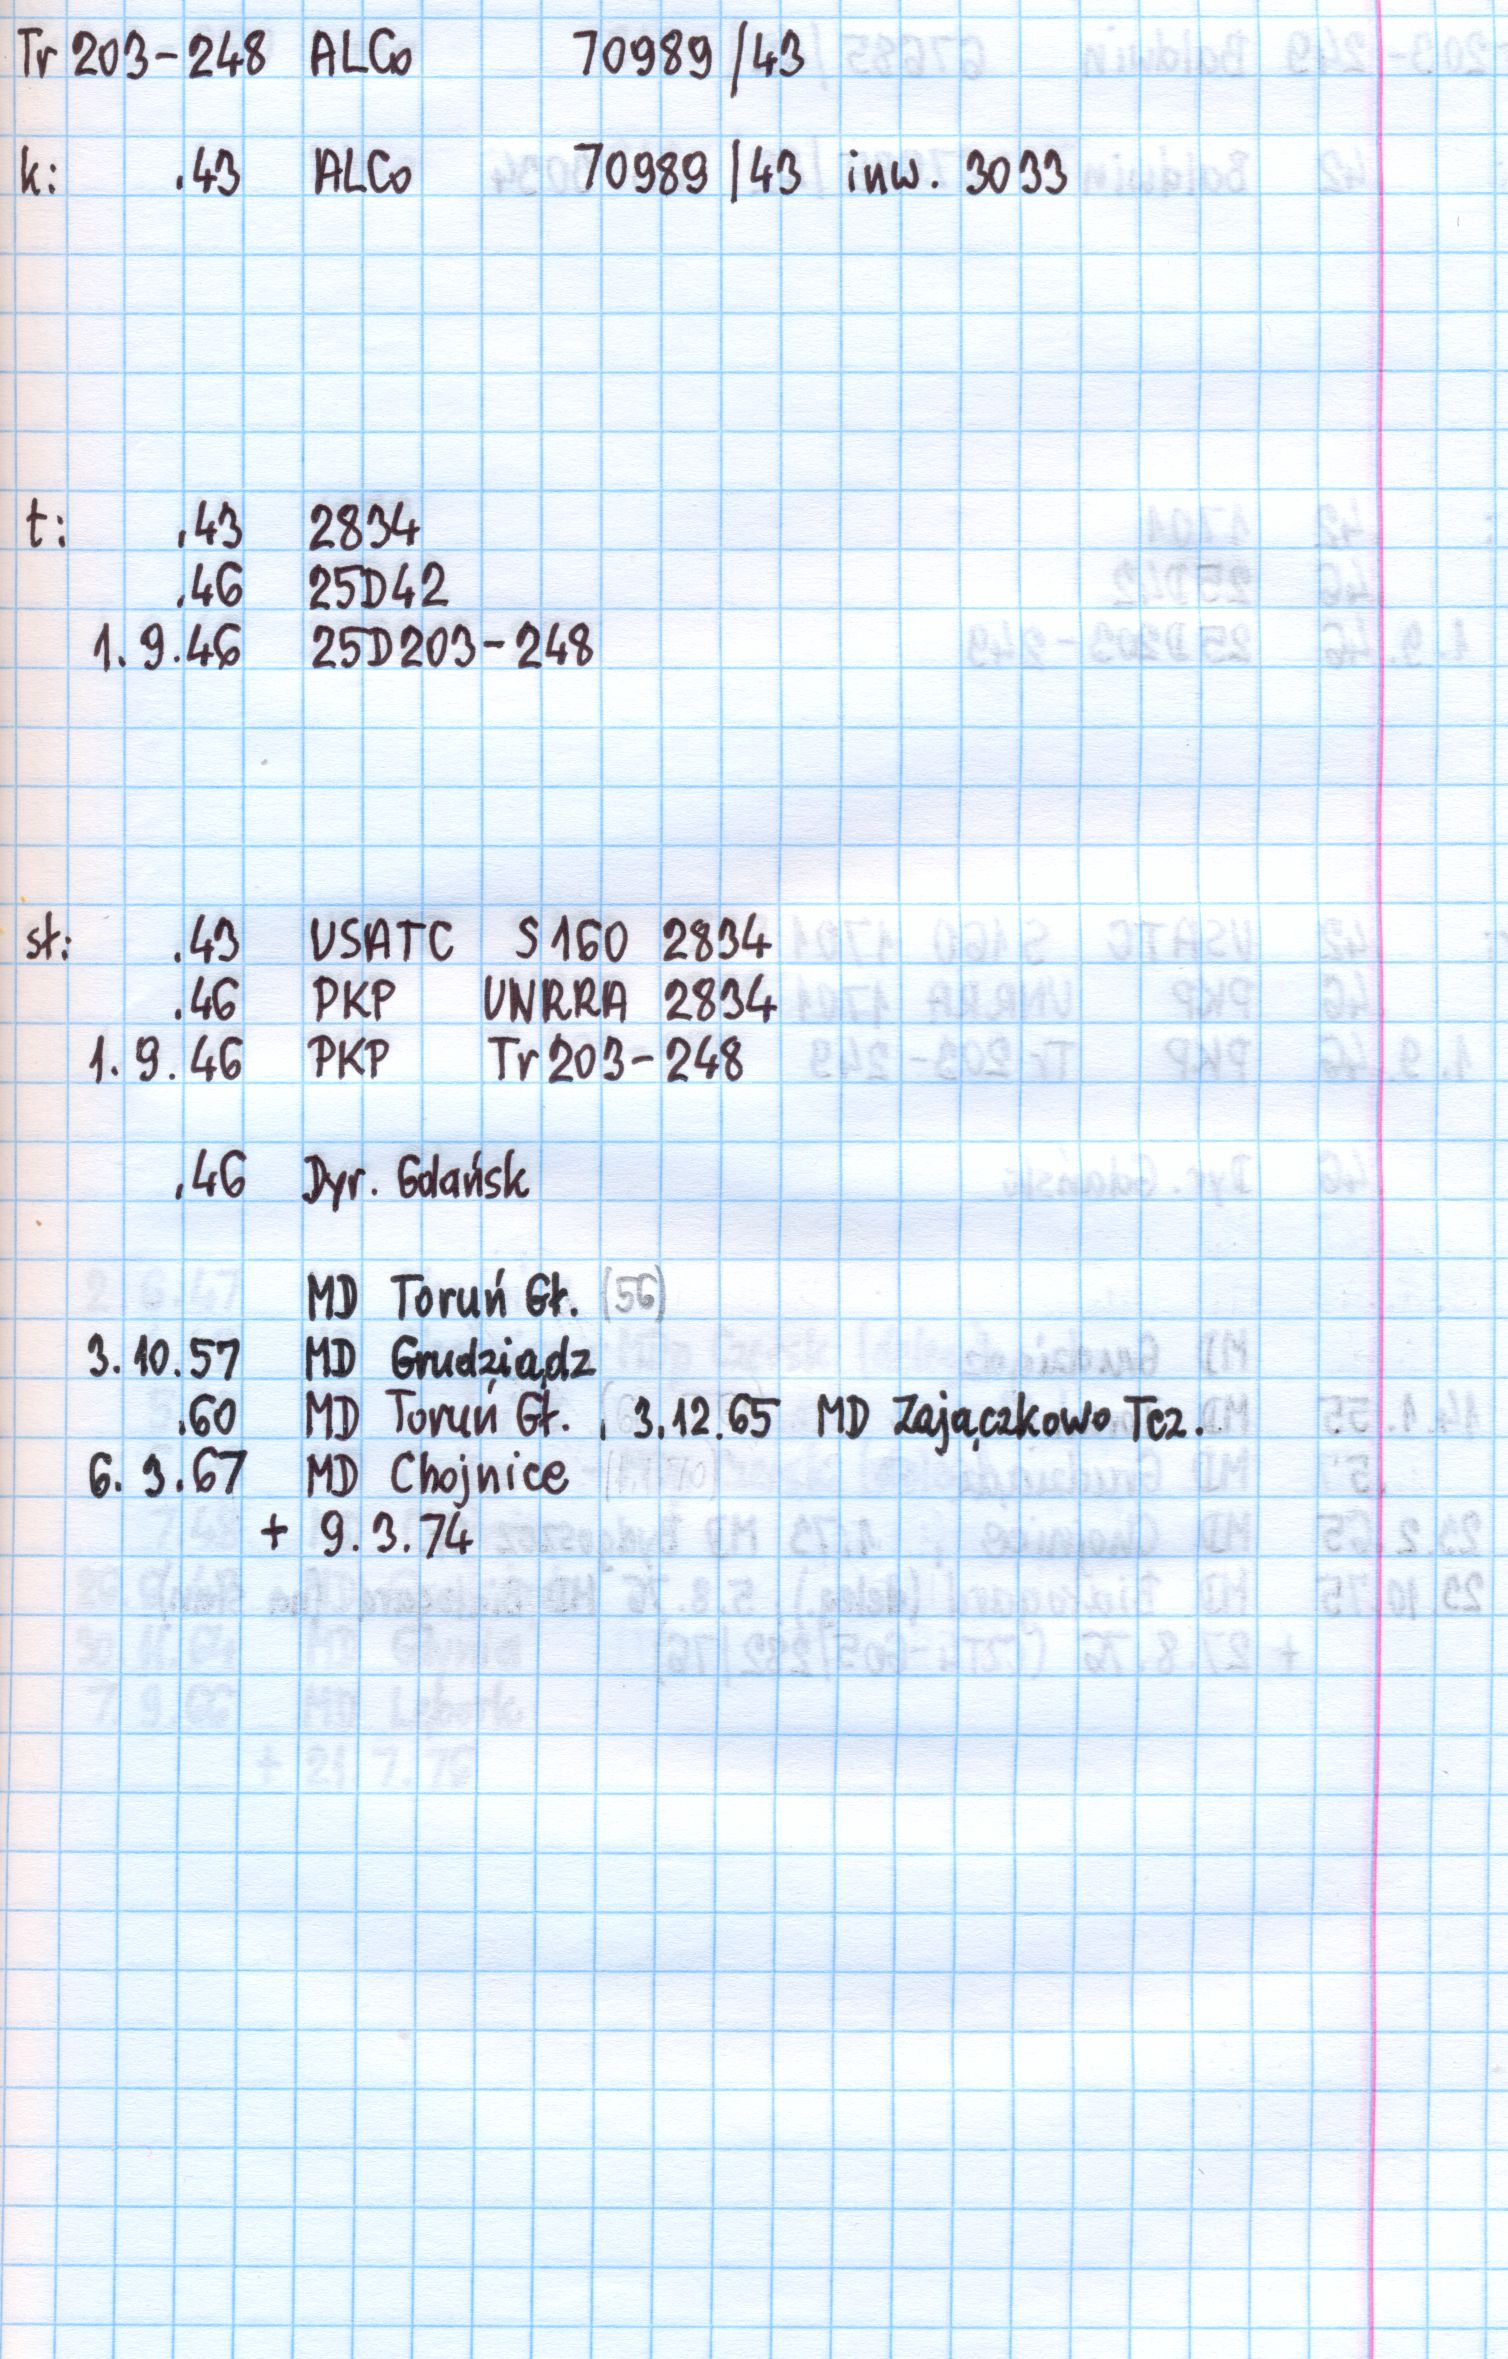 Tr 203-248 ALCo 70989/43
k: .43 ALCo 70989/43 inw. 3033
t: .43 2834
.46 25D42
1.9.46 25D203-248
st: .43 USATC S160 2834
.46 PKP UNRRA 2834
1.9.46 PKP Tr 203-248
.46 Dyr. Gdańsk
MD Toruń Gł. (56)
3.10.57 MD Grudziądz
.60 MD Toruń Gł. , 3.12.65 MD Zajączkowo Tcz.
6.3.67 MD Chojnice
+ 9.3.74